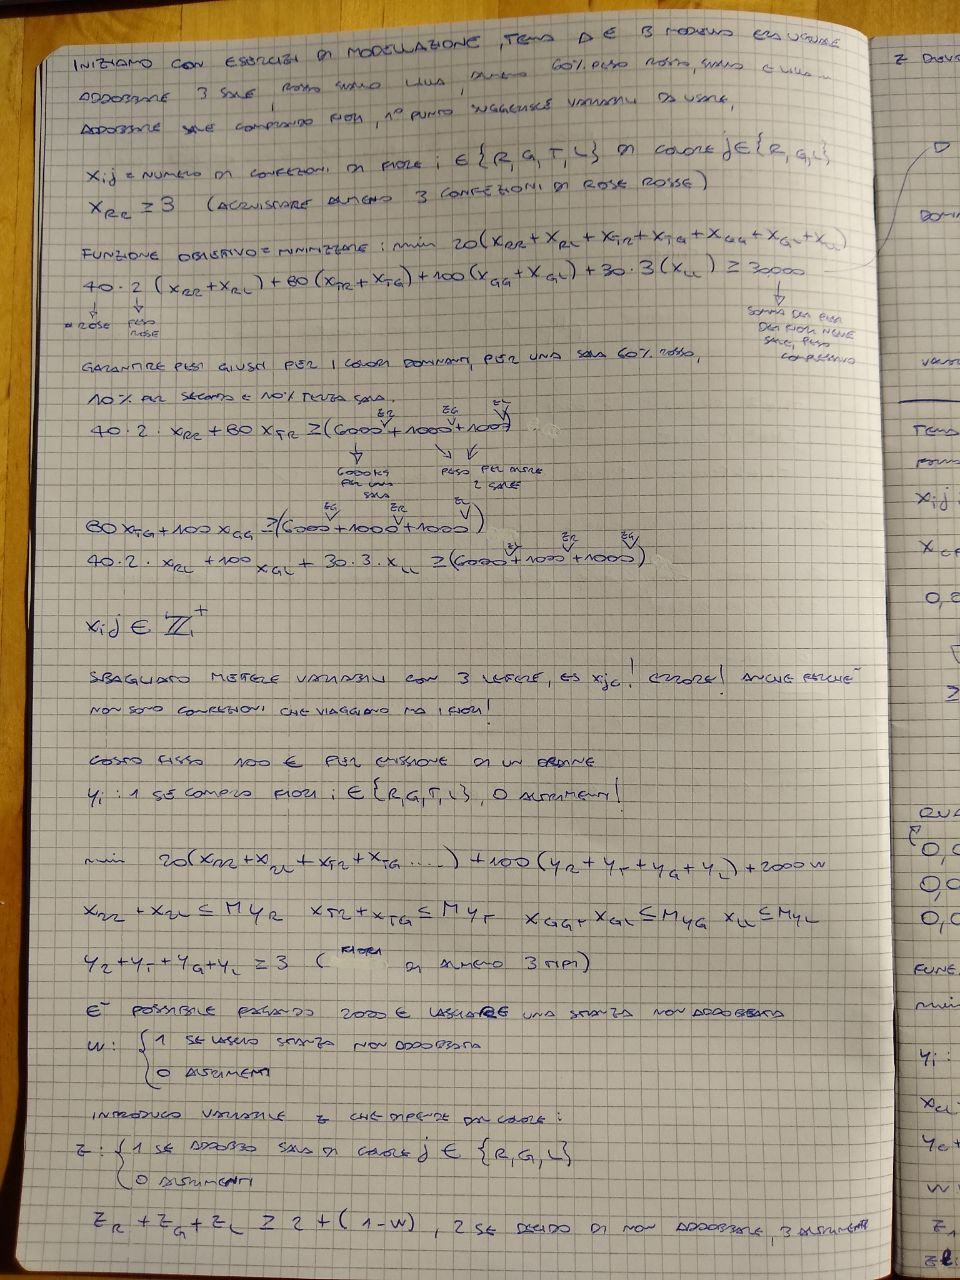 INIZIAMO CON ESERCIZI DI MODELLAZIONE, TEMA A E B MODELLO ERA UGUALE
ADDOBBARE 3 SALE, ROSSO GIALLO LILLA, ALMENO 60% PESO ROSSO, GIALLO E LILLA
ADDOBBARE SALE COMPRANDO FIORI, 1° PUNTO SUGGERISCE VARIABILI DA USARE,
Xij = NUMERO DI CONFEZIONI DI FIORE i ∈ {R, G, T, L} DI COLORE j ∈ {R, G, L}
XRR ≥ 3 (ACQUISTARE ALMENO 3 CONFEZIONI DI ROSE ROSSE)
FUNZIONE OBIETTIVO = MINIMIZZARE: min 20(XRR + XRL + XTR + XTG + XGG + XGL + XLL)
40·2 (XRR + XRL) + 60 (XTR + XTG) + 100 (XGG + XGL) + 30·3 (XLL) ≥ 30000
= ROSE
PESO ROSE
SOMMA DEI PESI
DEI FIORI NELLE
SALE, PESO
COMPLESSIVO
GARANTIRE PESI GIUSTI PER I COLORI DOMINANTI, PER UNA SALA 60% ROSSO,
10% PER SECONDA E 10% TERZA SALA.
ZR ZG ZL
40·2· XRR + 60 XTR ≥ (6000 + 1000 + 1000)
6000 KG
PER UNA
SALA
PESO PER ALTRE
2 SALE
ZG ZR ZL
60 XTG + 100 XGG ≥ (6000 + 1000 + 1000)
ZL ZR ZG
40·2· XRL + 100 XGL + 30·3· XLL ≥ (6000 + 1000 + 1000)
Xij ∈ ℤ+
SBAGLIATO METTERE VARIABILI CON 3 LETTERE, ES Xijc! ERRORE! ANCHE PERCHÈ
NON SONO CONFEZIONI CHE VIAGGIANO MA I FIORI!
COSTO FISSO 100 € PER EMISSIONE DI UN ORDINE
yi : 1 SE COMPRO FIORI i ∈ {R, G, T, L}, 0 ALTRIMENTI!
min 20(XRR + XRL + XTR + XTG .....) + 100 (yR + yT + yG + yL) + 2000 W
XRR + XRL ≤ M yR XTR + XTG ≤ M yT XGG + XGL ≤ M yG XLL ≤ M yL
yR + yT + yG + yL ≥ 3 (FIORI DI ALMENO 3 TIPI)
È POSSIBILE PAGANDO 2000 € LASCIARE UNA STANZA NON ADDOBBATA
W: { 1 SE LASCIO STANZA NON ADDOBBATA
0 ALTRIMENTI
INTRODUCO VARIABILE Z CHE DIPENDE DAL COLORE:
Z: { 1 SE ADDOBBO SALA DI COLORE j ∈ {R, G, L}
0 ALTRIMENTI
ZR + ZG + ZL ≥ 2 + (1 - W), 2 SE DECIDO DI NON ADDOBBARE, 3 ALTRIMENTI